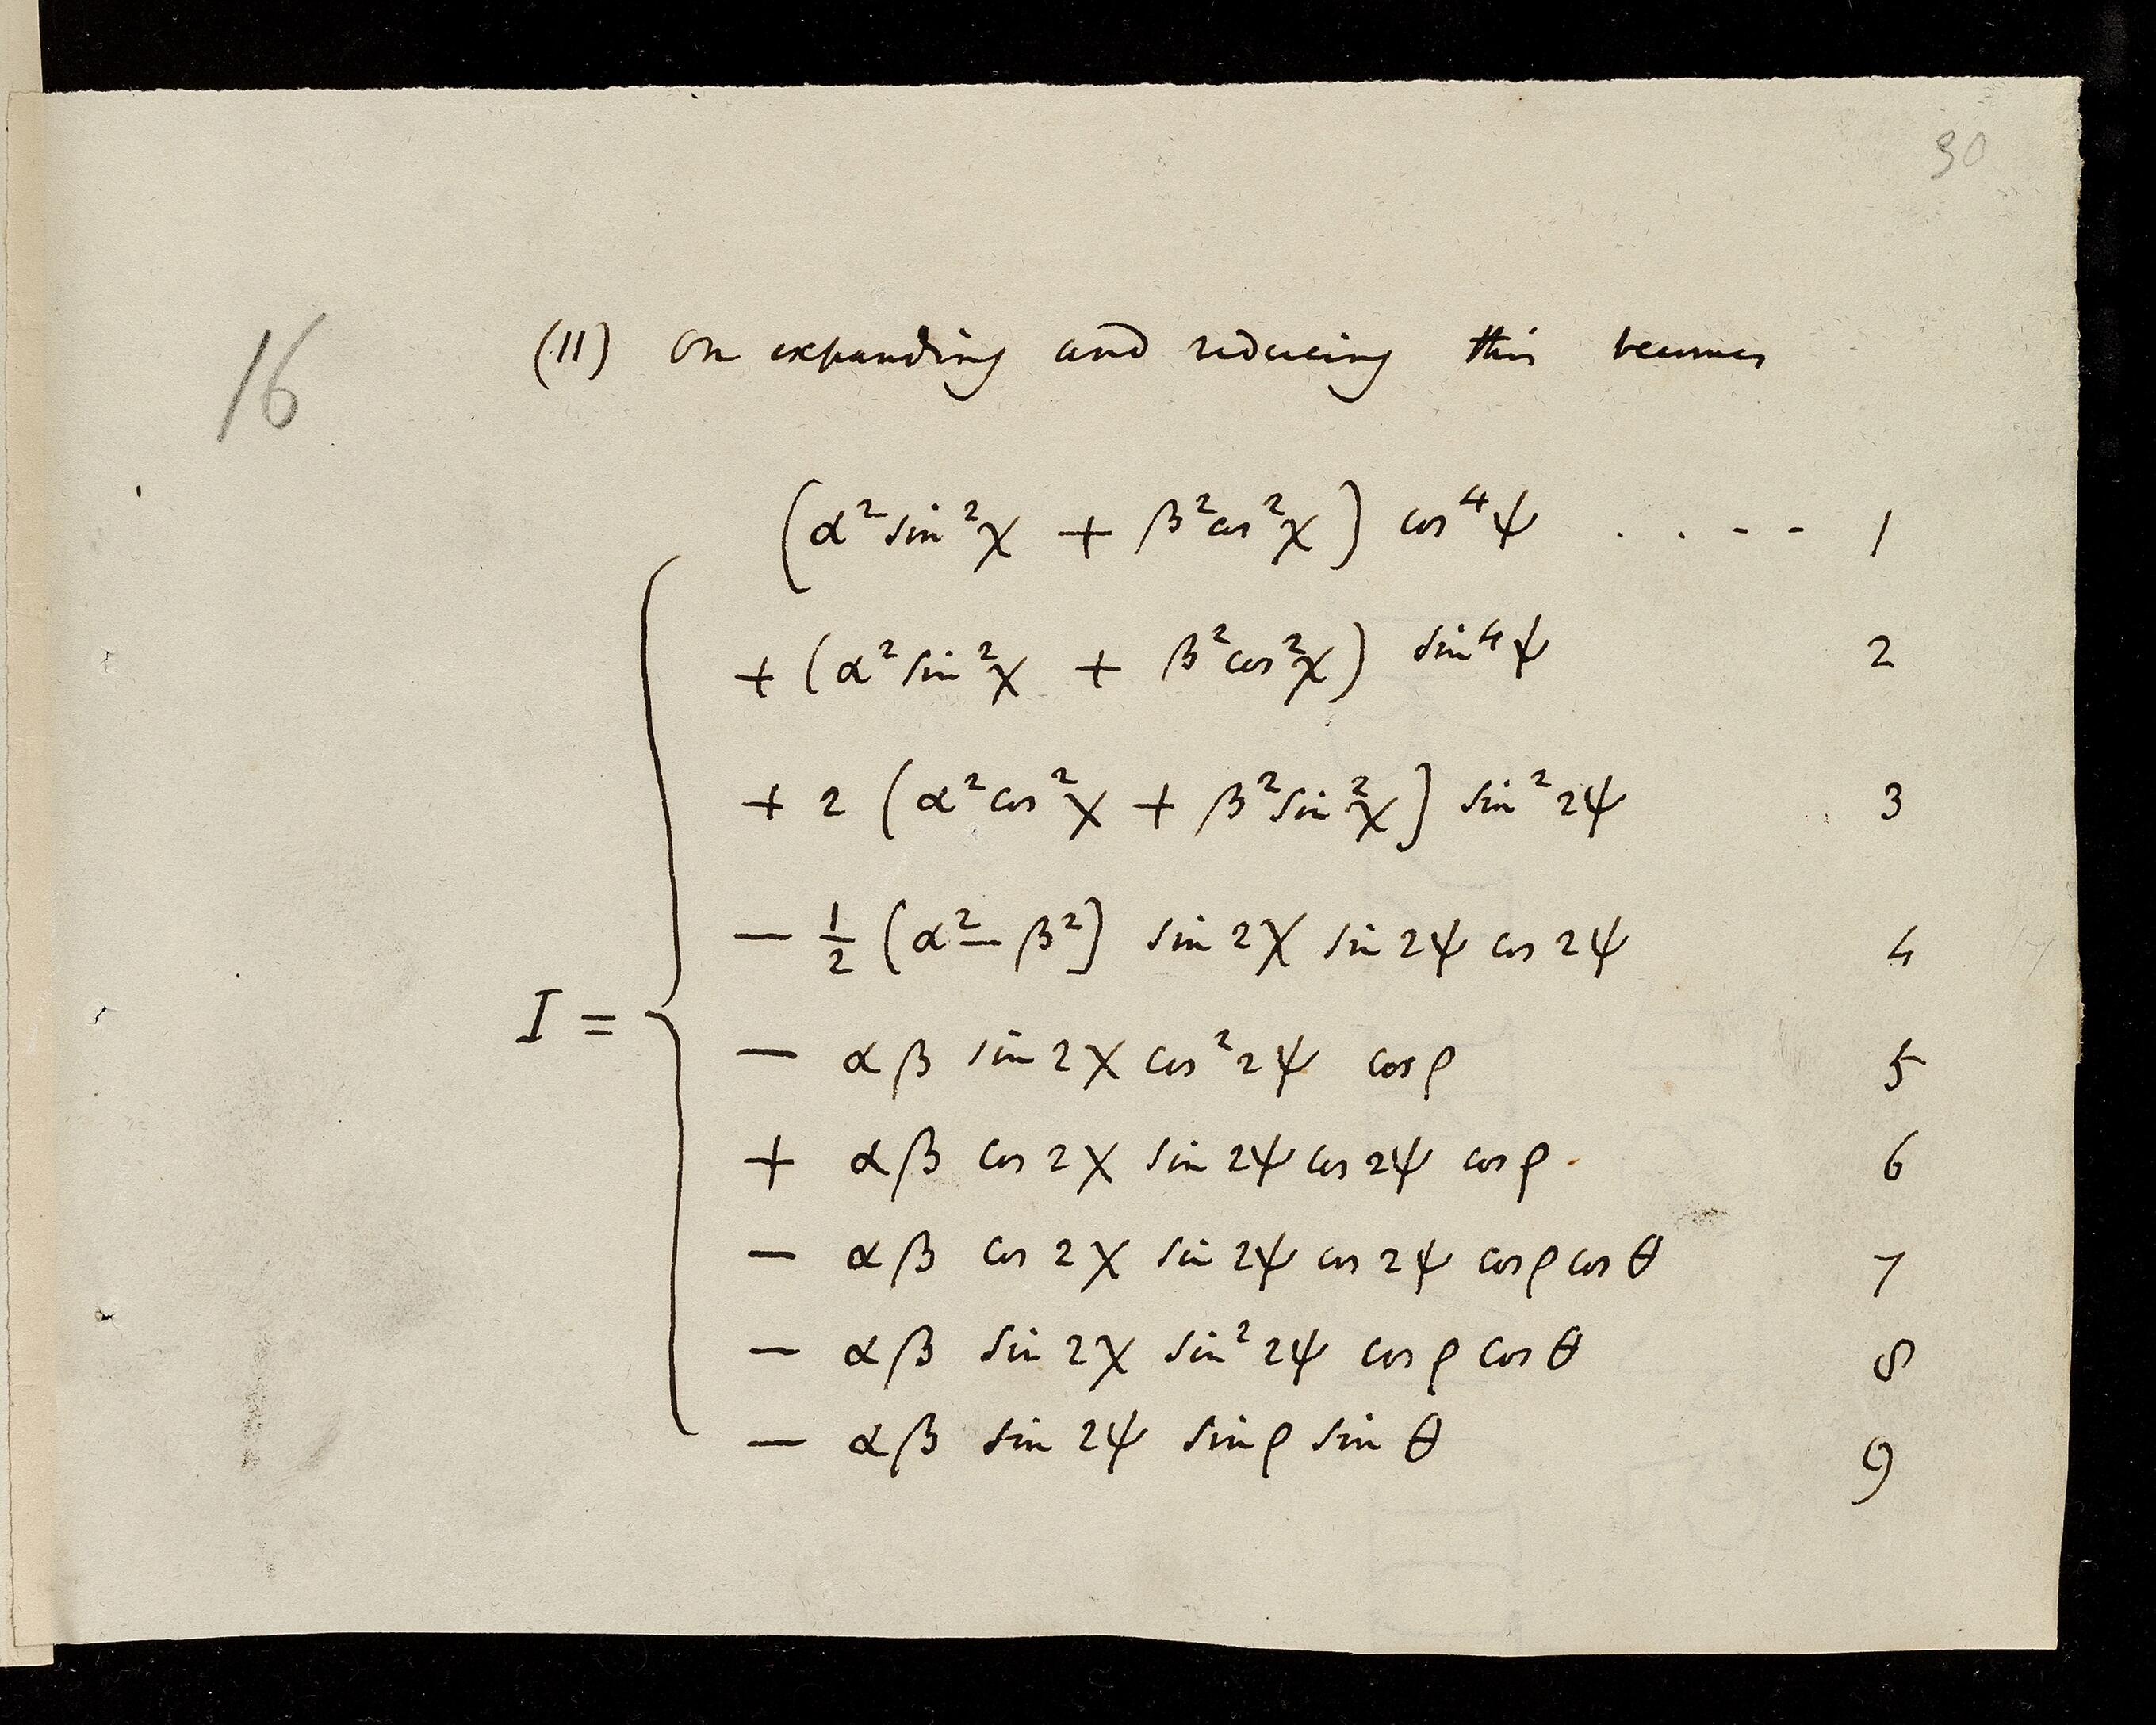 30
16
(11) On expanding and reducing this becomes
(α² sin²χ + β² cos²χ) cos⁴ψ . . - - 1
+ (α² sin²χ + β² cos²χ) sin⁴ψ 2
+ 2 (α² cos²χ + β² sin²χ) sin² 2ψ 3
— ½ (α² — β²) sin 2χ sin 2ψ cos 2ψ 4
I =
— αβ sin 2χ cos² 2ψ cos ρ 5
+ αβ cos 2χ sin 2ψ cos 2ψ cos ρ . 6
— αβ cos 2χ sin 2ψ cos 2ψ cos ρ cos θ 7
— αβ sin 2χ sin² 2ψ cos ρ cos θ 8
— αβ sin 2ψ sin ρ sin θ 9